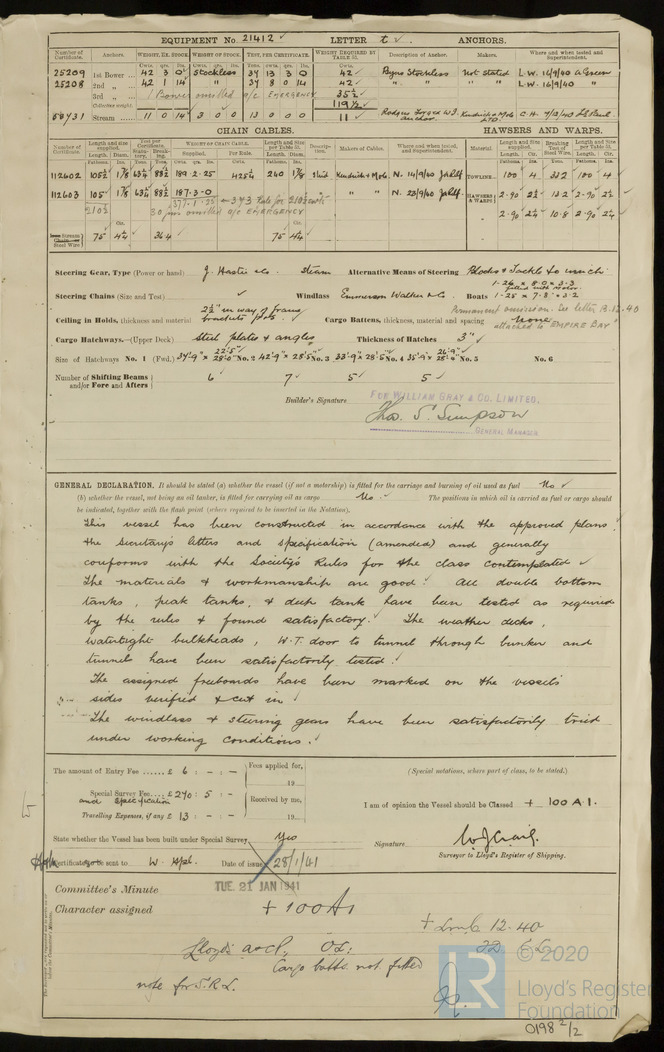 EQUIPMENT No. 21412 LETTER t ANCHORS.
Number of Certificate. Anchors. WEIGHT, EX. STOCK WEIGHT OF STOCK. TEST, PER CERTIFICATE. WEIGHT REQUIRED BY TABLE 31. Description of Anchor. Makers. Where and when tested and Superintendent.
25209 1st Bower 42 3 0 Stockless 34 13 3 0 42 Byers Stockless Not stated L.W. 16/9/40 A Green
25208 2nd " 42 1 14 " 34 8 0 14 42 " " " L.W. 16/9/40 "
3rd " 1 Bower omitted o/c EMERGENCY 35½
Collective weight. 119½
58431 Stream 11 0 14 3 0 0 13 0 0 0 11
CHAIN CABLES. HAWSERS AND WARPS.
Number of Certificate. Length and size supplied. Test per Certificate. WEIGHT OF CHAIN CABLE. Length and size per Table 31. Description. Makers of Cables. Where and when tested, and Superintendent. Material Length and size supplied. Breaking Test of Steel Wire. Length and size per Table 31.
112602 105½ 1⅞ 63¼ 88½ 189·2·25 425¼ 240 1⅞ Stud Kendrick & Mole. N. 14/9/40 TOWLINE 100 4 33.2 100 4
112603 105 1⅞ 63¼ 88½ 187·3·0 " " N. 23/9/40 HAWSERS & WARPS 2·90 2½ 13.2 2·90 2½
210½ 377·1·25 ← 343 Rule for 210½ cwts " 2·90 2¼ 10.8 2·90 2¼
30 fms omitted o/c EMERGENCY
Steel Wire) 75 4¼ 36.4 75 4¼
Steering Gear, Type (Power or hand) J. Hastie & Co. Steam Alternative Means of Steering Blocks & Tackle to winch
1·26 × 8·0 × 3·3 fitted with motor.
Steering Chains (Size and Test) Windlass Emmerson Walker & Co. Boats 1·25 × 7·8 × 3·2
Ceiling in Holds, thickness and material 2½" in way of frame brackets Cargo Battens, thickness, material and spacing None
Permanent omission. See letter attached to "EMPIRE BAY"
Cargo Hatchways.—(Upper Deck) Steel plates & angles Thickness of Hatches 3"
Size of Hatchways No. 1 (Fwd.) 34'·9" × No. 2 42'·9" × 28'·5" No. 3 33'·9" × 28'·5" No. 4 35'·9" × No. 5 No. 6
Number of Shifting Beams and/or Fore and Afters 6 7 5 5
Builder's Signature FOR WILLIAM GRAY & CO. LIMITED.
Thos. S. Simpson
GENERAL MANAGER
GENERAL DECLARATION. It should be stated (a) whether the vessel (if not a motorship) is fitted for the carriage and burning of oil used as fuel No
(b) whether the vessel, not being an oil tanker, is fitted for carrying oil as cargo No. The positions in which oil is carried as fuel or cargo should
be indicated, together with the flash point (where required to be inserted in the Notation).
This vessel has been constructed in accordance with the approved plans,
the Secretary's letters and specification (amended) and generally
conforms with the Society's Rules for the class contemplated
The materials & workmanship are good. All double bottom
tanks, peak tanks, & deep tank have been tested as required
by the rules & found satisfactory. The weather decks,
watertight bulkheads, W.T. door to tunnel through bunker and
tunnels have been satisfactorily tested.
The assigned freeboards have been marked on the vessel's
sides verified & cut in
The windlass & steering gears have been satisfactorily tried
under working conditions.
The amount of Entry Fee ...... £ 6 : - : - Fees applied for, (Special notations, where part of class, to be stated.)
19
Special Survey Fee £ 240 : 5 : - Received by me, I am of opinion the Vessel should be Classed + 100 A.1.
and specification
Travelling Expenses, if any £ 13 : - : - 19
State whether the Vessel has been built under Special Survey Yes Signature W J Craig.
Surveyor to Lloyd's Register of Shipping.
Certificate to be sent to W. Hpl. Date of issue 28/1/41
TUE. 21 JAN 1941
Committee's Minute
Character assigned + 100A1
+ LMC 12.40
Lloyd's A&CP. OL:
Cargo batts. not fitted
note for S.R.L.
© 2020
LR
Lloyd's Register
Foundation
0198 2/2